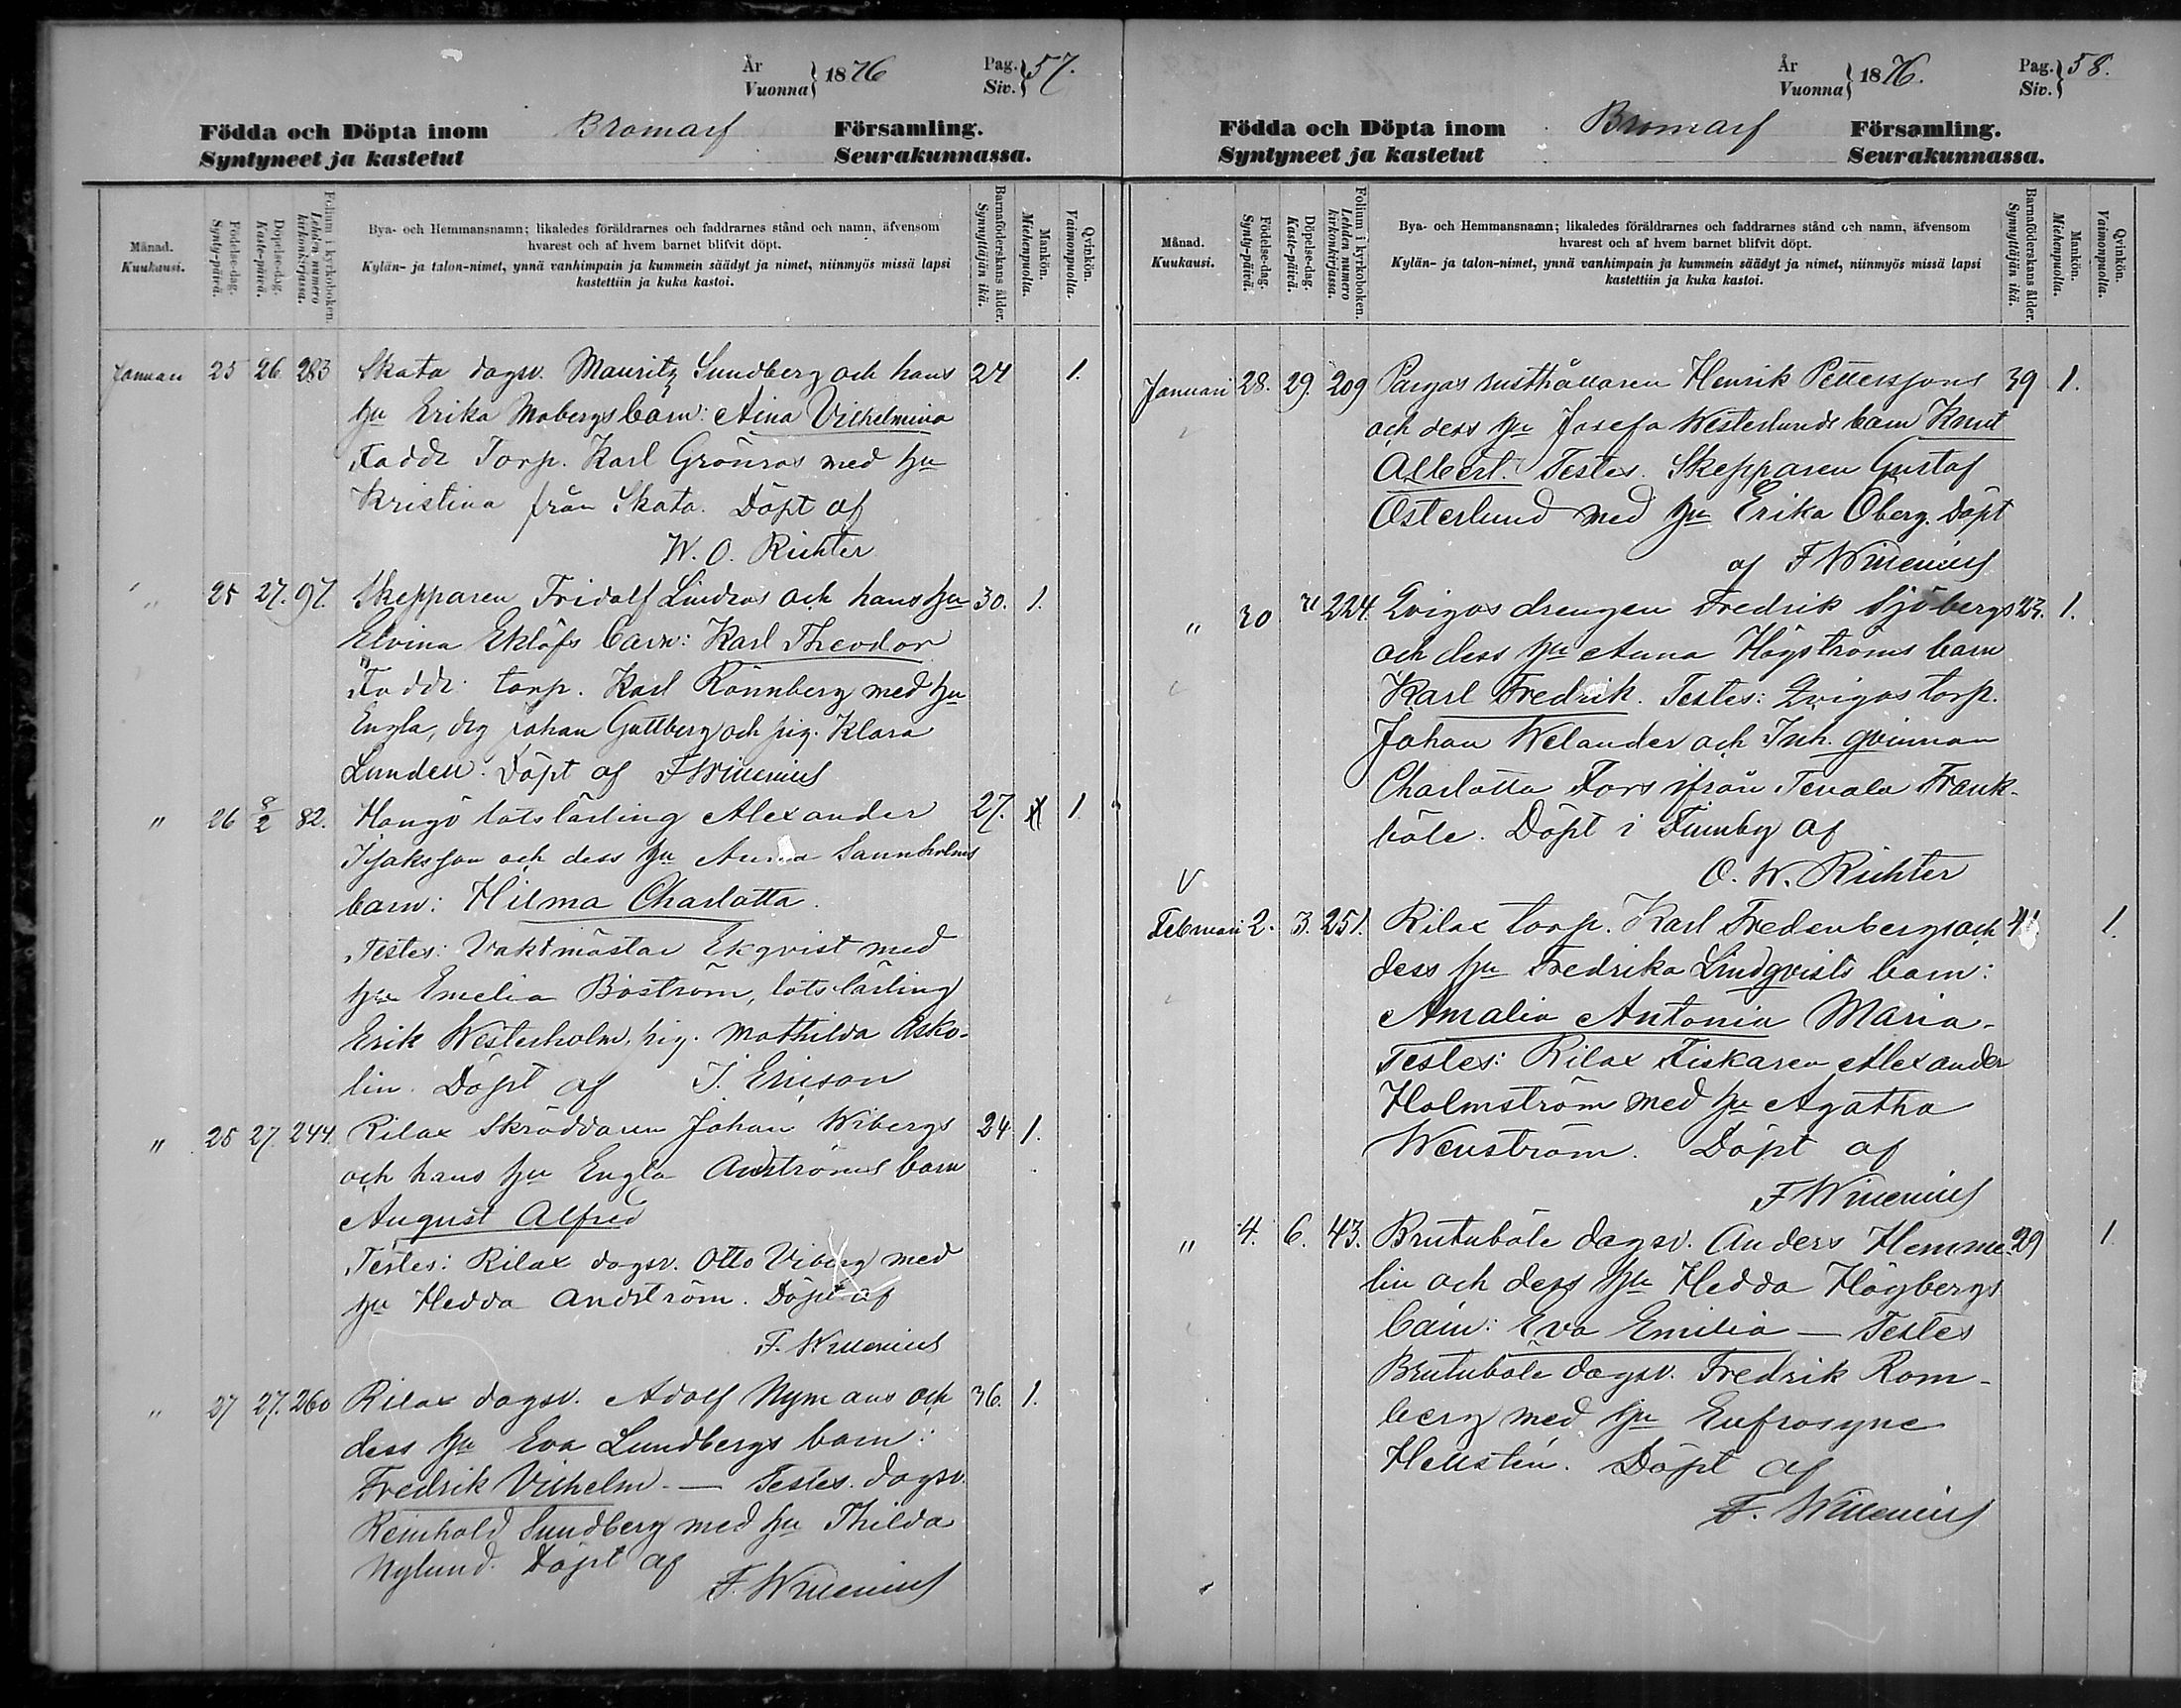 År
Vuonna } 1876
Pag.
Siv. } 57.
Födda och Döpta inom Bromarf Församling.
Syntyneet ja kastetut Seurakunnassa.
Månad.
Kuukausi.
Födelse-dag.
Synty-päivä.
Döpelse-dag.
Kaste-päivä.
Folium i kyrkoboken.
Lehden numero kirkonkirjassa.
Bya- och Hemmansnamn; likaledes föräldrarnes och faddrarnes stånd och namn, äfvensom
hvarest och af hvem barnet blifvit döpt.
Kylän- ja talon-nimet, ynnä vanhimpain ja kummein säädyt ja nimet, niinmyös missä lapsi
kastettiin ja kuka kastoi.
Barnaföderskans ålder.
Synnyttäjän ikä.
Mankön.
Miehenpuolla.
Qvinkön.
Vaimonpuolla.
Januari 25 26 283 Skata dagsv. Mauritz Sundberg och hans 24 1.
hu Erika Mobergs barn: Aina Vilhelmina
Faddr Torp. Karl Grönros med hu
Kristina från Skata. Döpt af
W. O. Richter
" 25 27. 97. Skepparen Fridolf Lindros och hans hu 30. 1.
Elvina Eklöfs barn: Karl Theodor
Faddr. torp. Karl Rönnberg med hu
Engla, drg Johan Guttberg och pig. Klara
Lundell. Döpt af F Willenius
" 26 8/2 82. Hangö lotslärling Alexander 27. 1.
Isaksson och dess hu Anna Sannholms
barn: Hilma Charlotta.
Testes: Vaktmästar Ekqvist med
hu Emelia Boström, lotslärling
Erik Westerholm, pig. Mathilda Asko-
lin. Döpt af J. Ericson
" 25 27. 244. Rilax Skräddaren Johan Wibergs 24. 1.
och hans hu Engla Andströms barn
August Alfred
Testes: Rilax dagsv. Otto Viberg med
hu Hedda Andström. Döpt af
F. Willenius
" 27 27. 260 Rilax dagsv. Adolf Nymans och 36. 1.
dess hu Eva Lundbergs barn:
Fredrik Vilhelm. — Testes. dagsv.
Reinhold Sundberg med hu Thilda
Nylund. Döpt af
F. Willenius
År
Vuonna } 1876.
Pag.
Siv. } 58.
Födda och Döpta inom Bromarf Församling.
Syntyneet ja kastetut Seurakunnassa.
Månad.
Kuukausi.
Födelse-dag.
Synty-päivä.
Döpelse-dag.
Kaste-päivä.
Folium i kyrkoboken.
Lehden numero kirkonkirjassa.
Bya- och Hemmansnamn; likaledes föräldrarnes och faddrarnes stånd och namn, äfvensom
hvarest och af hvem barnet blifvit döpt.
Kylän- ja talon-nimet, ynnä vanhimpain ja kummein säädyt ja nimet, niinmyös missä lapsi
kastettiin ja kuka kastoi.
Barnaföderskans ålder.
Synnyttäjän ikä.
Mankön.
Miehenpuolla.
Qvinkön.
Vaimonpuolla.
Januari 28. 29. 209 Pargas rusthållaren Henrik Petterssons 39 1.
och dess hu Josefa Westerlunds barn Knut
Albert. Testes. Skepparen Gustaf
Österlund med hu Erika Öberg. Döpt
af F Willenius
" 30 31 224. Qvigos drengen Fredrik Sjöbergs 23. 1.
och dess hu Anna Högströms barn
Karl Fredrik. Testes: Qvigos torp.
Johan Welander och Inh. qvinnan
Charlotta Fors ifrån Tenala Trank-
böle. Döpt i Finnby af
O. W. Richter
V
Februari 2. 3. 251. Rilax torp. Karl Fredenbergs och 41. 1.
dess hu Fredrika Lindqvists barn:
Amalia Antonia Maria.
Testes: Rilax Fiskaren Alexander
Holmström med hu Agatha
Wenström. Döpt af
F Willenius
" 4. 6. 43. Brutuböle dagsv. Anders Hemme- 29 1.
lin och dess hu Hedda Högbergs
barn: Eva Emilia — Testes
Brutuböle dagsv. Fredrik Rom-
berg med hu Eufrosyne
Hellstén. Döpt af
F. Willenius